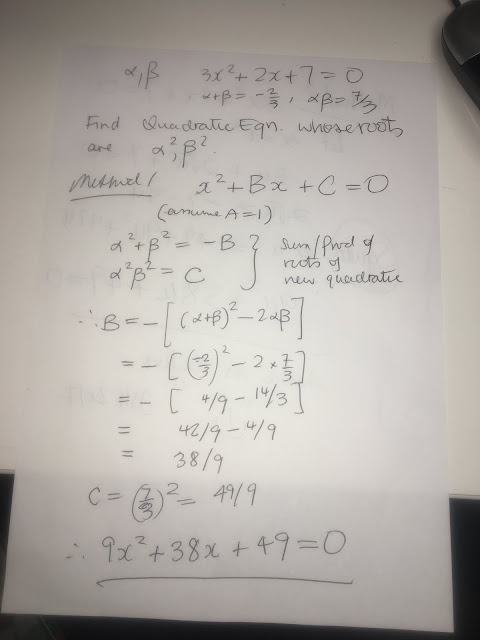 α,β 3x²+2x+7=0
α+β=-2/3, αβ=7/3
Find Quadratic Eqn. whose roots
are α²,β².
Method 1 x²+Bx+C=0
(assume A=1)
α²+β²=-B } sum/prod of
α²β²=C roots of
new quadratic
∴B=-[(α+β)²-2αβ]
=-[(-2/3)²-2×7/3]
=-[4/9-14/3]
= 42/9-4/9
= 38/9
C=(7/3)²=49/9
∴ 9x²+38x+49=0